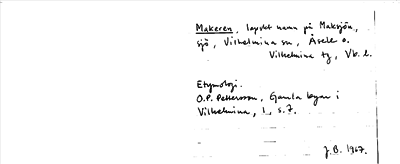 Makeren, lapskt namn på Maksjön,
sjö, Vilhelmina sn, Åsele o.
Vilhelmina tg, Vb. l.
Etymologi:
O.P. Pettersson, Gamla byar i
Vilhelmina, 1, s. 7.
J.B. 1967.